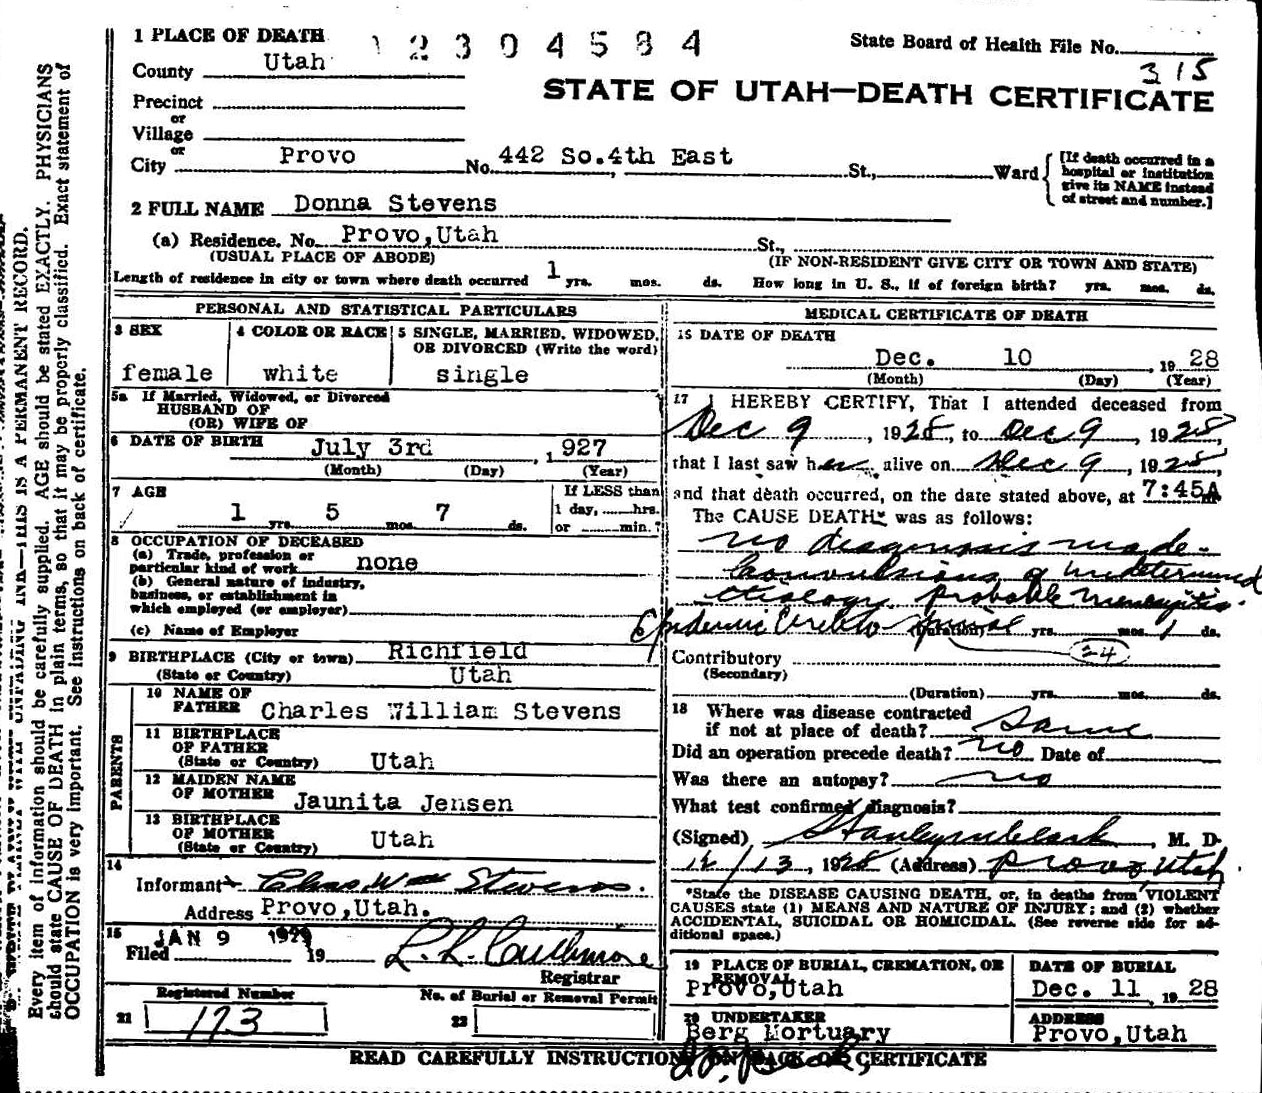 1 PLACE OF DEATH
12304584
State Board of Health File No.
County Utah
315
STATE OF UTAH—DEATH CERTIFICATE
Precinct
or
Village
or
City Provo No. 442 So.4th East St., Ward
[If death occurred in a
hospital or institution
give its NAME instead
of street and number.]
2 FULL NAME Donna Stevens
(a) Residence. No. Provo,Utah St.,
(USUAL PLACE OF ABODE) (IF NON-RESIDENT GIVE CITY OR TOWN AND STATE)
Length of residence in city or town where death occurred 1 yrs. mos. ds. How long in U. S., if of foreign birth? yrs. mos. ds.
PERSONAL AND STATISTICAL PARTICULARS
3 SEX
female
4 COLOR OR RACE
white
5 SINGLE, MARRIED, WIDOWED,
OR DIVORCED (Write the word)
single
5a If Married, Widowed, or Divorced
HUSBAND OF
(OR) WIFE OF
6 DATE OF BIRTH July 3rd , 1927
(Month) (Day) (Year)
7 AGE
1 yrs. 5 mos. 7 ds.
If LESS than
1 day, hrs.
or min.?
8 OCCUPATION OF DECEASED
(a) Trade, profession or
particular kind of work none
(b) General nature of industry,
business, or establishment in
which employed (or employer)
(c) Name of Employer
9 BIRTHPLACE (City or town) Richfield
(State or Country) Utah
PARENTS
10 NAME OF
FATHER Charles William Stevens
11 BIRTHPLACE
OF FATHER
(State or Country) Utah
12 MAIDEN NAME
OF MOTHER Jaunita Jensen
13 BIRTHPLACE
OF MOTHER
(State or Country) Utah
14
Informant Chas Wm Stevens.
Address Provo,Utah.
15
Filed JAN 9 1929 19
Registrar
Registered Number
21 173
No. of Burial or Removal Permit
22
MEDICAL CERTIFICATE OF DEATH
15 DATE OF DEATH
Dec. 10 , 1928
(Month) (Day) (Year)
17 I HEREBY CERTIFY, That I attended deceased from
Dec 9, 1928, to Dec 9, 1928,
that I last saw her alive on Dec 9, 1928,
and that death occurred, on the date stated above, at 7:45A
The CAUSE DEATH* was as follows:
no diagnosis made-
Convulsions of undetermined
etiology probable meningitis.
Epidemic Cerebro Spinal (Duration) yrs. mos. 1 ds.
Contributory 24
(Secondary)
(Duration) yrs. mos. ds.
18 Where was disease contracted
if not at place of death? Same
Did an operation precede death? no Date of
Was there an autopsy? no
What test confirmed diagnosis?
(Signed) Stanley M Clark, M. D.
12/13, 1928 (Address) Provo Utah
*State the DISEASE CAUSING DEATH, or, in deaths from VIOLENT
CAUSES state (1) MEANS AND NATURE OF INJURY; and (2) whether
ACCIDENTAL, SUICIDAL OR HOMICIDAL. (See reverse side for ad-
ditional space.)
19 PLACE OF BURIAL, CREMATION, OR
REMOVAL
Provo,Utah
DATE OF BURIAL
Dec. 11, 1928
20 UNDERTAKER
Berg Mortuary
ADDRESS
Provo,Utah
READ CAREFULLY INSTRUCTIONS ON BACK OF CERTIFICATE
THIS IS A PERMANENT RECORD.
Every item of information should be carefully supplied. AGE should be stated EXACTLY. PHYSICIANS
should state CAUSE OF DEATH in plain terms, so that it may be properly classified. Exact statement of
OCCUPATION is very important. See instructions on back of certificate.